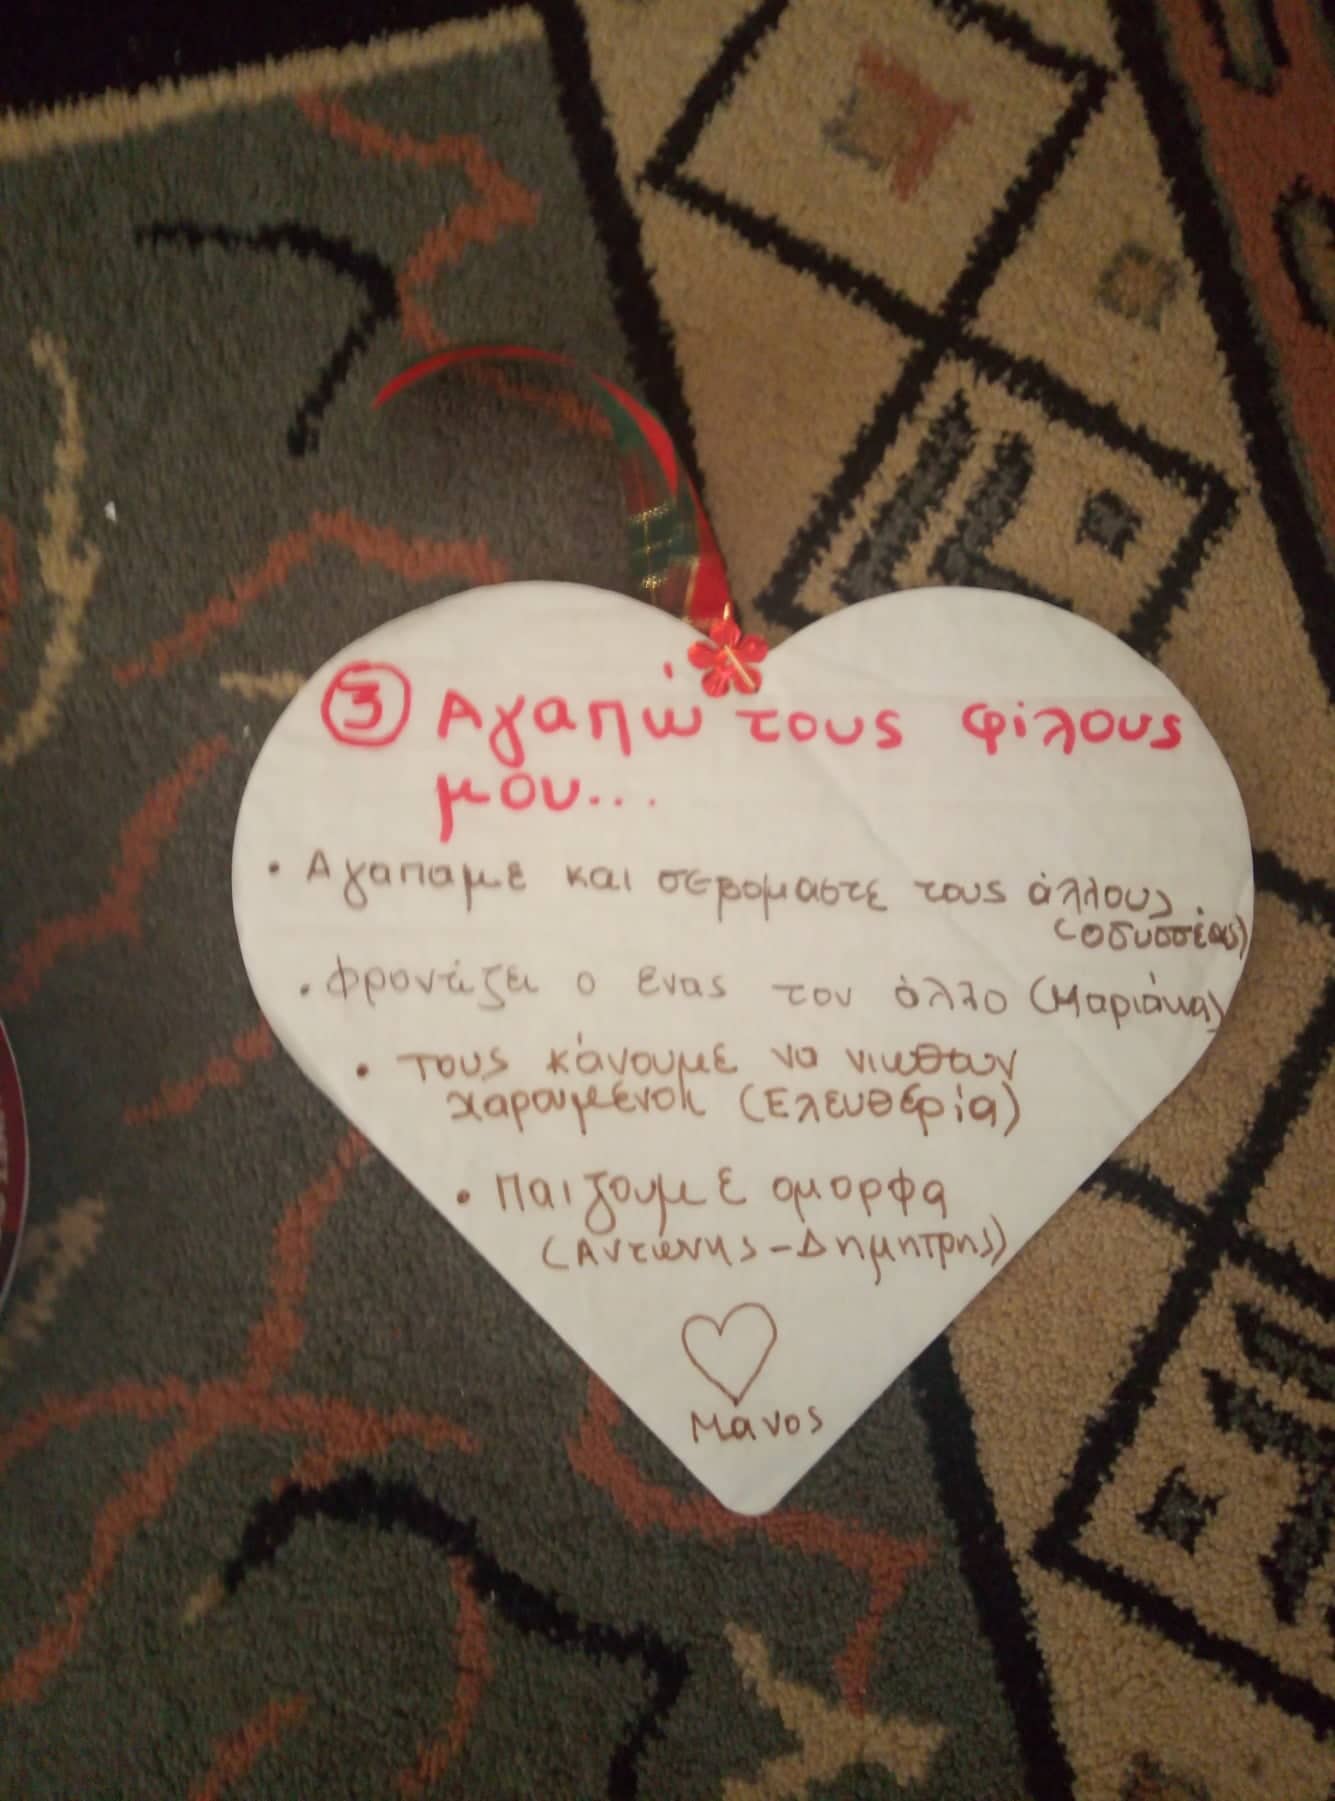 ③ Αγαπώ τους φίλους
μου...
• Αγαπαμε και σεβομαστε τους άλλους
(Οδυσσέας)
• Φροντίζει ο ενας τον άλλο (Μαριάνα)
• Τους κάνουμε να νιωθουν
χαρουμένοι (Ελευθερία)
• Παιζουμε ομορφα
(Αντώνης - Δημητρης)
Μανος